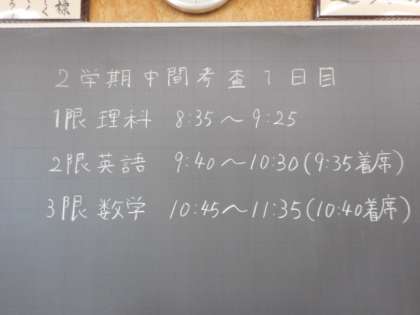 2学期中間考査1日目
1限 理科 8:35〜9:25
2限 英語 9:40〜10:30(9:35着席)
3限 数学 10:45〜11:35(10:40着席)